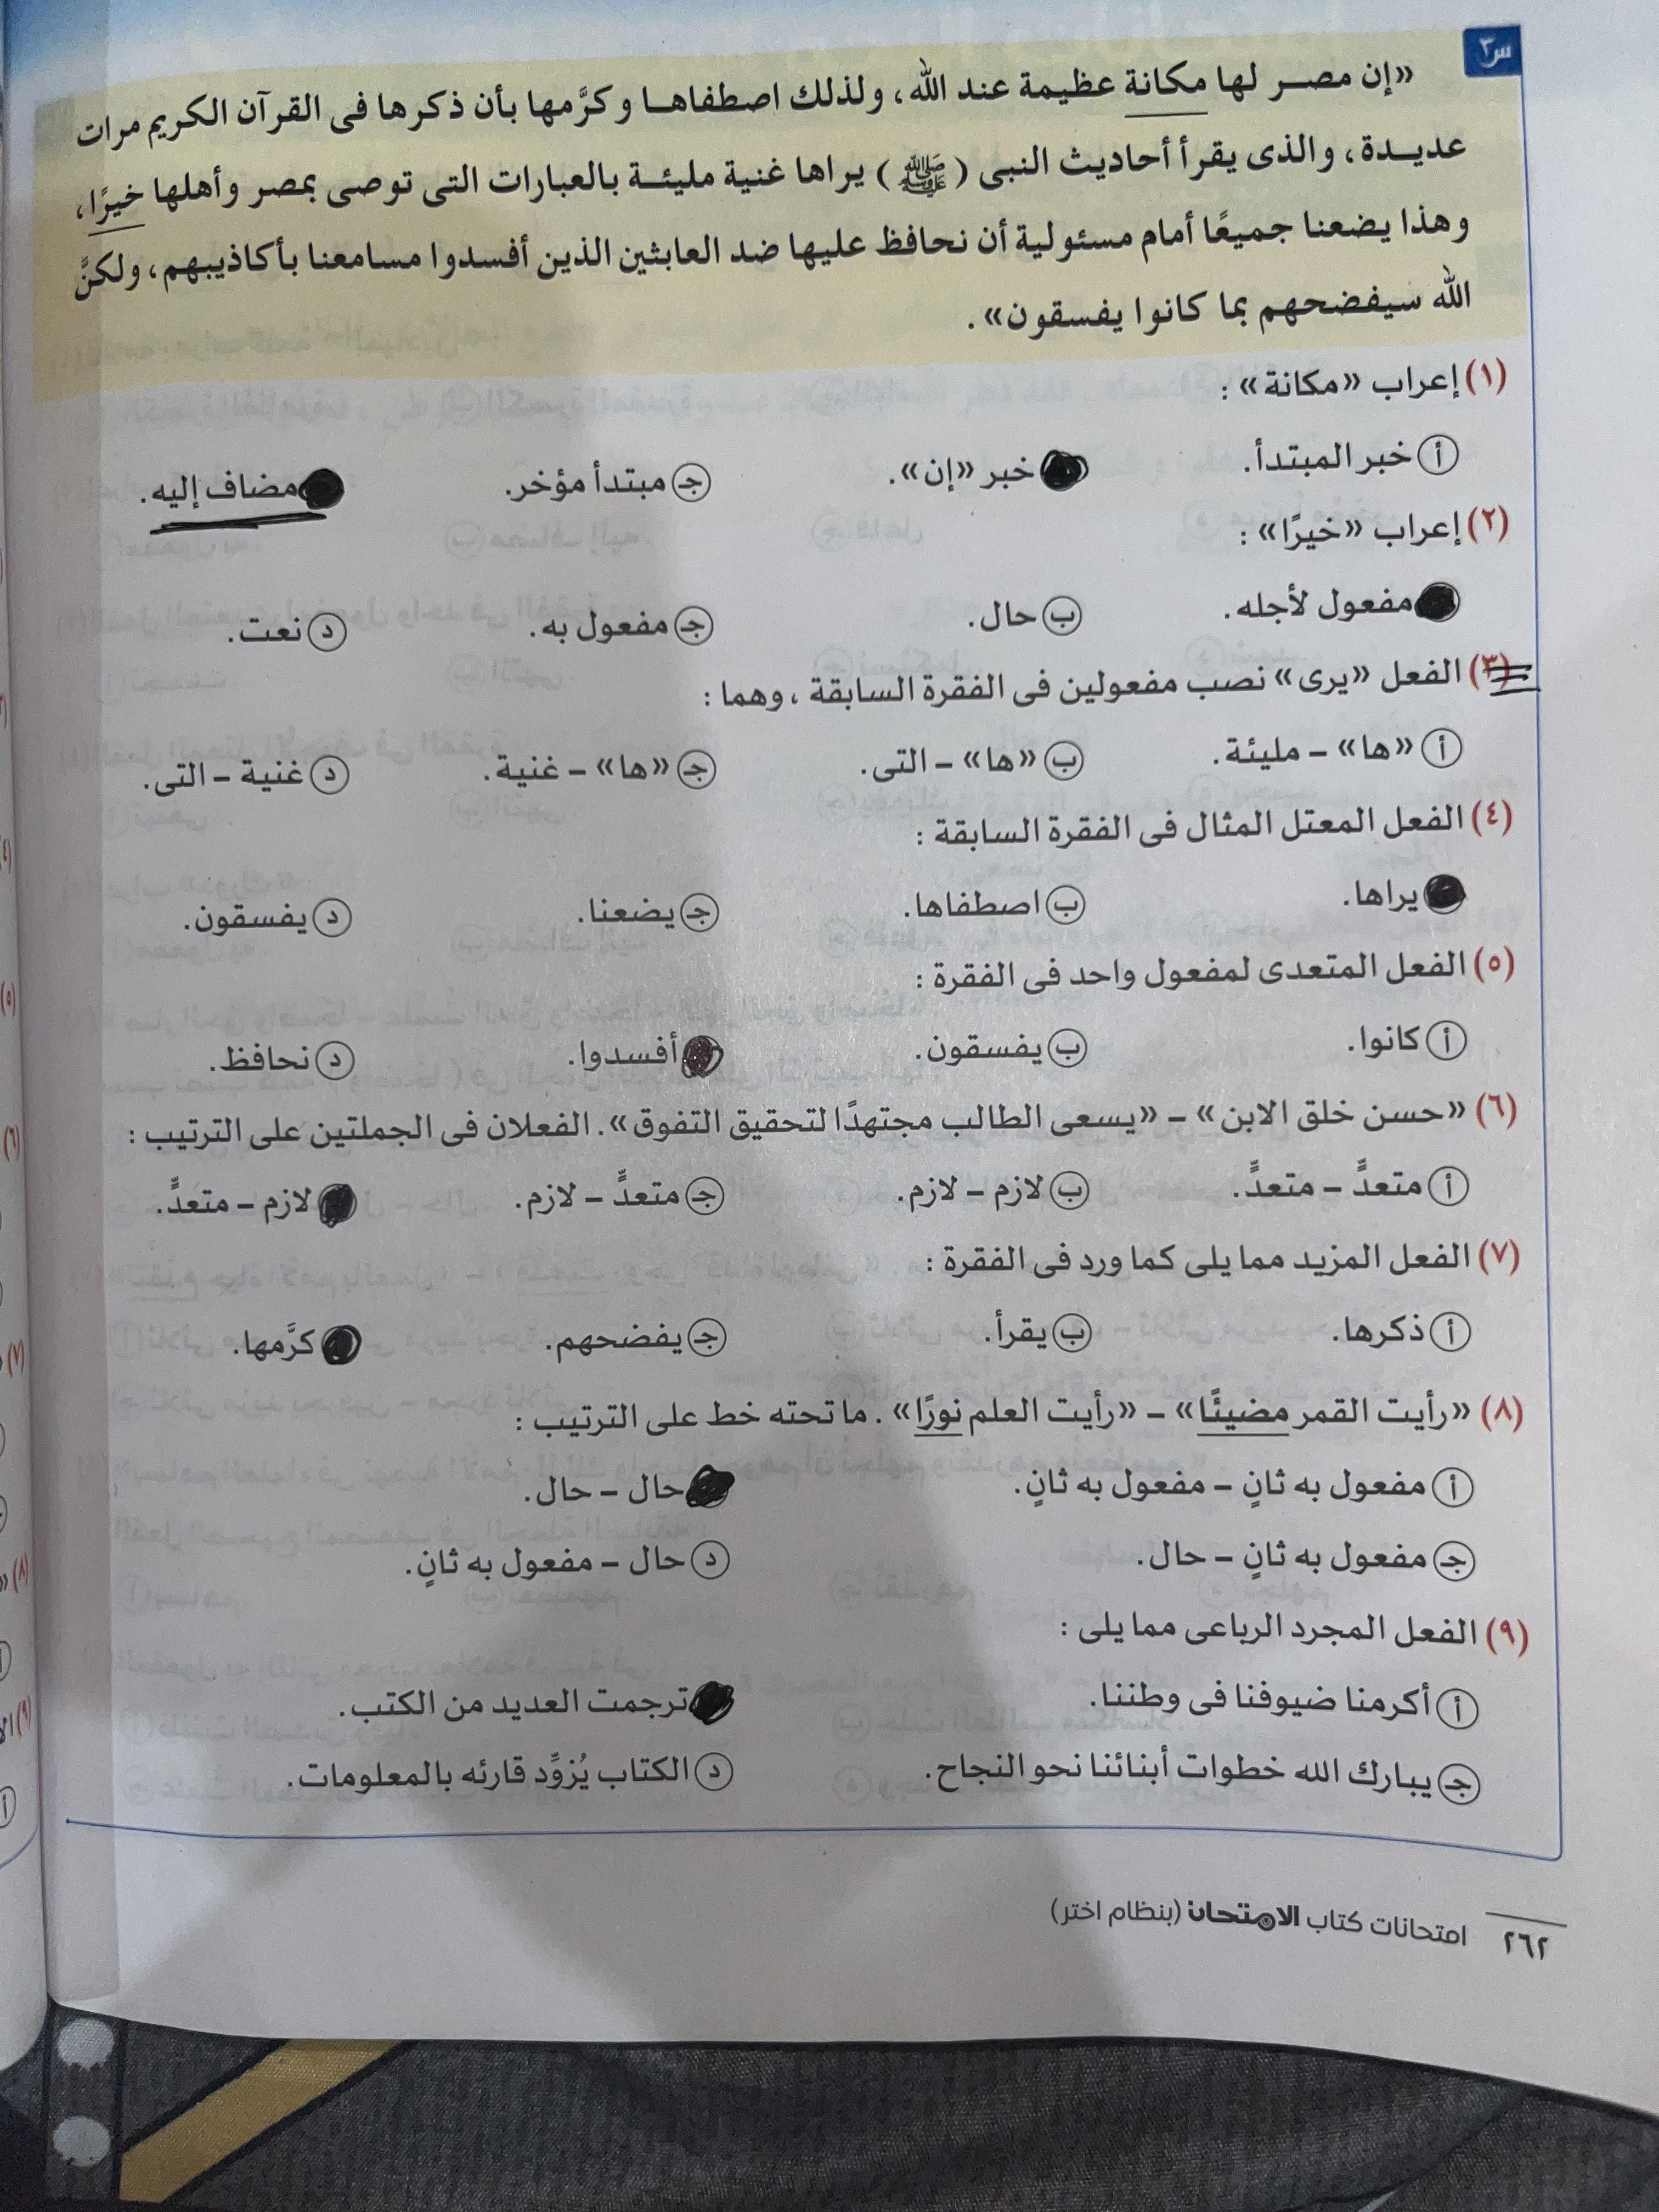 س٣
«إن مصر لها مكانة عظيمة عند الله، ولذلك اصطفاها وكرَّمها بأن ذكرها فى القرآن الكريم مرات
عديدة، والذى يقرأ أحاديث النبى (ﷺ) يراها غنية مليئة بالعبارات التى توصى بمصر وأهلها خيرًا،
وهذا يضعنا جميعًا أمام مسئولية أن نحافظ عليها ضد العابثين الذين أفسدوا مسامعنا بأكاذيبهم، ولكنَّ
الله سيفضحهم بما كانوا يفسقون».
(١) إعراب «مكانة» :
أ خبر المبتدأ. خبر «إن». جـ مبتدأ مؤخر. مضاف إليه.
(٢) إعراب «خيرًا» :
مفعول لأجله. ب حال. جـ مفعول به. د نعت.
(٣) الفعل «يرى» نصب مفعولين فى الفقرة السابقة ، وهما :
أ «ها» – مليئة. ب «ها» – التى. جـ «ها» – غنية. د غنية – التى.
(٤) الفعل المعتل المثال فى الفقرة السابقة :
يراها. ب اصطفاها. جـ يضعنا. د يفسقون.
(٥) الفعل المتعدى لمفعول واحد فى الفقرة :
أ كانوا. ب يفسقون. أفسدوا. د نحافظ.
(٦) «حسن خلق الابن» – «يسعى الطالب مجتهدًا لتحقيق التفوق». الفعلان فى الجملتين على الترتيب :
أ متعدٍّ – متعدٍّ. ب لازم – لازم. جـ متعدٍّ – لازم. لازم – متعدٍّ.
(٧) الفعل المزيد مما يلى كما ورد فى الفقرة :
أ ذكرها. ب يقرأ. جـ يفضحهم. كرَّمها.
(٨) «رأيت القمر مضيئًا» – «رأيت العلم نورًا» . ما تحته خط على الترتيب :
أ مفعول به ثانٍ – مفعول به ثانٍ. حال – حال.
جـ مفعول به ثانٍ – حال. د حال – مفعول به ثانٍ.
(٩) الفعل المجرد الرباعى مما يلى :
أ أكرمنا ضيوفنا فى وطننا. ترجمت العديد من الكتب.
جـ يبارك الله خطوات أبنائنا نحو النجاح. د الكتاب يُزوِّد قارئه بالمعلومات.
٢٦٢ امتحانات كتاب الامتحان (بنظام اختر)